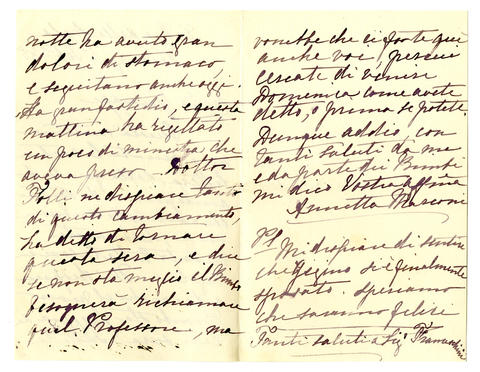 notte ha avuto gran
dolori di stomaco,
e seguitano anche oggi.
Ha gran fastidio, e questa
mattina ha rigettato
un poco di minestra che
aveva preso Dottor
Folli ne dispiace tanto
di questo cambiamento,
ha detto di tornare
questa sera, e dice
se non sta meglio el
bisognera richiamare
quel Professore, ma
vorrebbe che ci foste qui
anche voi, percui
cercate di venire
Domenica come avete
detto, o prima se potete.
Dunque addio, con
tanti saluti da me
e da parte dei Bimbi
mi dico Vostra affma
Annetta Marconi
PS Mi dispiace di sentire
che Gegino si è finalmente
sposato. speriamo
che saranno felici
Tanti saluti a Sigr